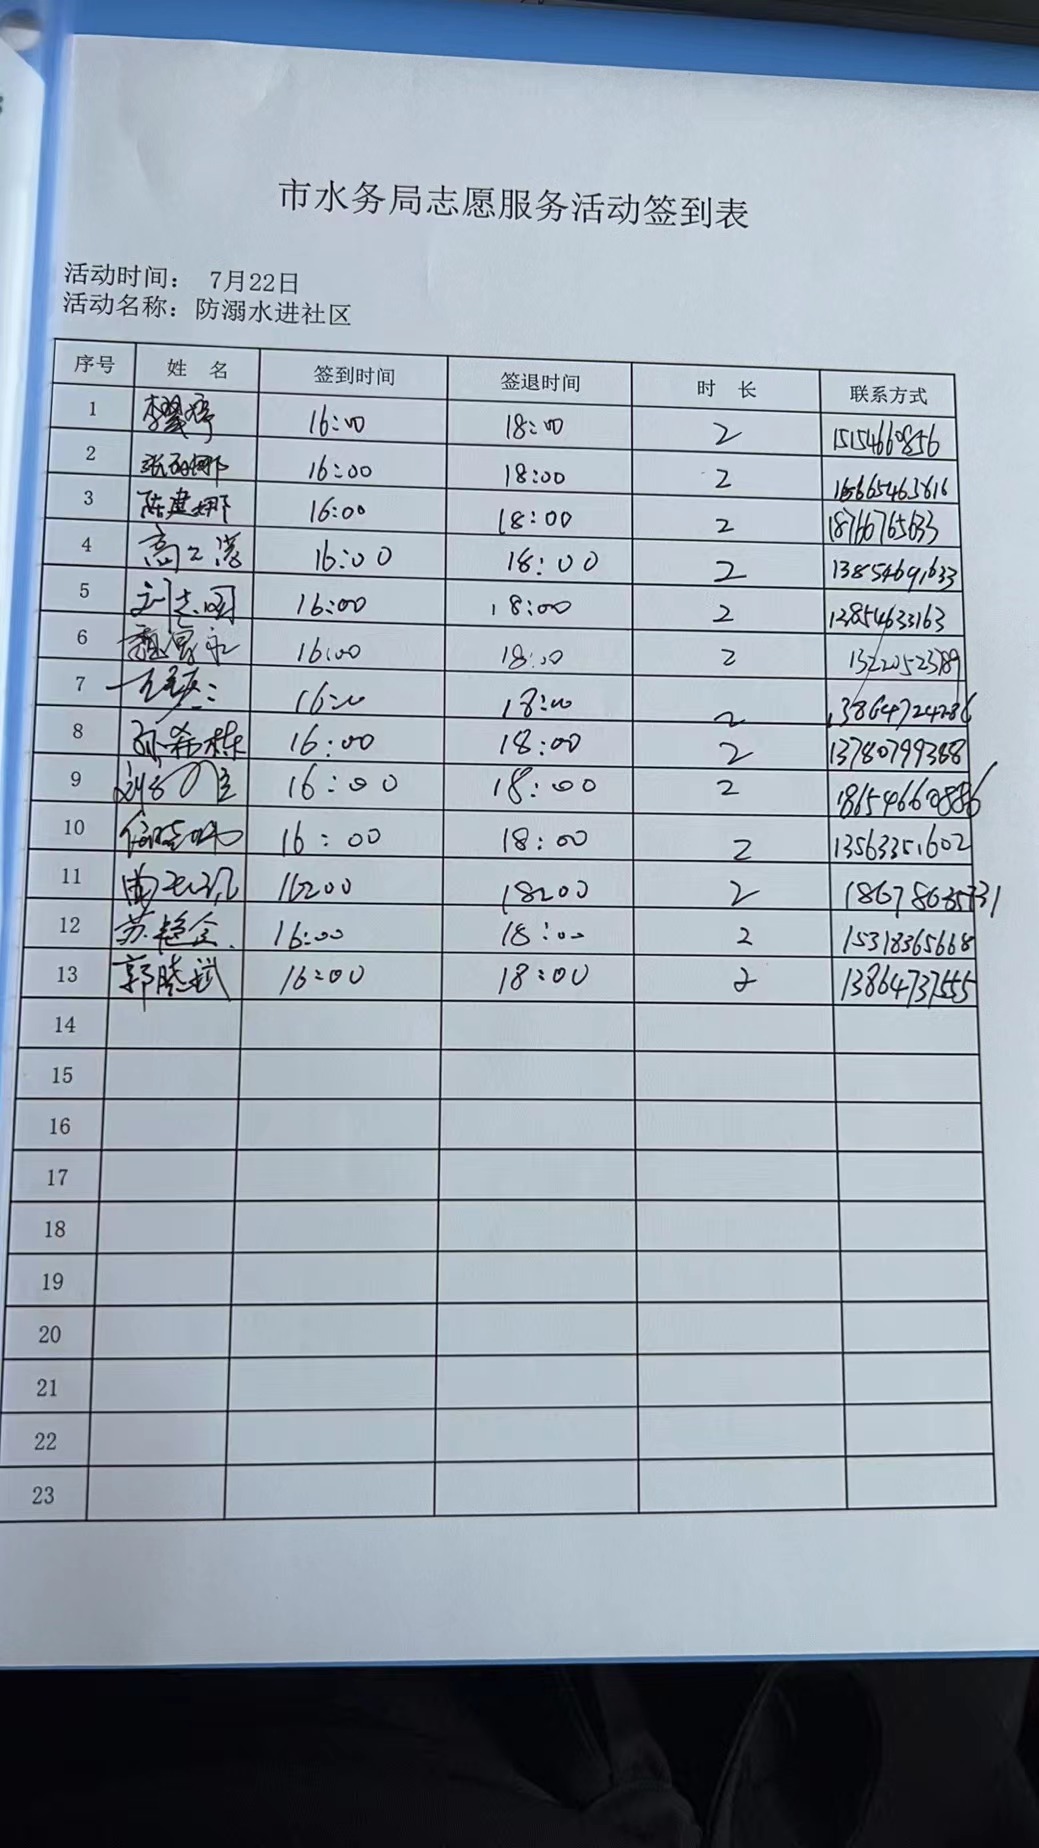 市水务局志愿服务活动签到表
活动时间: 7月22日
活动名称: 防溺水进社区
序号 姓 名 签到时间 签退时间 时 长 联系方式
1 16:00 18:00 2 15154660856
2 16:00 18:00 2
3 陈建娜 16:00 18:00 2 18766765633
4 16:00 18:00 2 13854691633
5 刘志国 16:00 18:00 2 13854633163
6 16:00 18:00 2 13220523789
7 16:00 18:00 2 13864724286
8 孙希栋 16:00 18:00 2 13780799388
9 16:00 18:00 2 18654660886
10 16:00 18:00 2 13563351602
11 16:00 18:00 2
12 苏艳金 16:00 18:00 2 15318365668
13 郭晓斌 16:00 18:00 2 13864737555
14
15
16
17
18
19
20
21
22
23